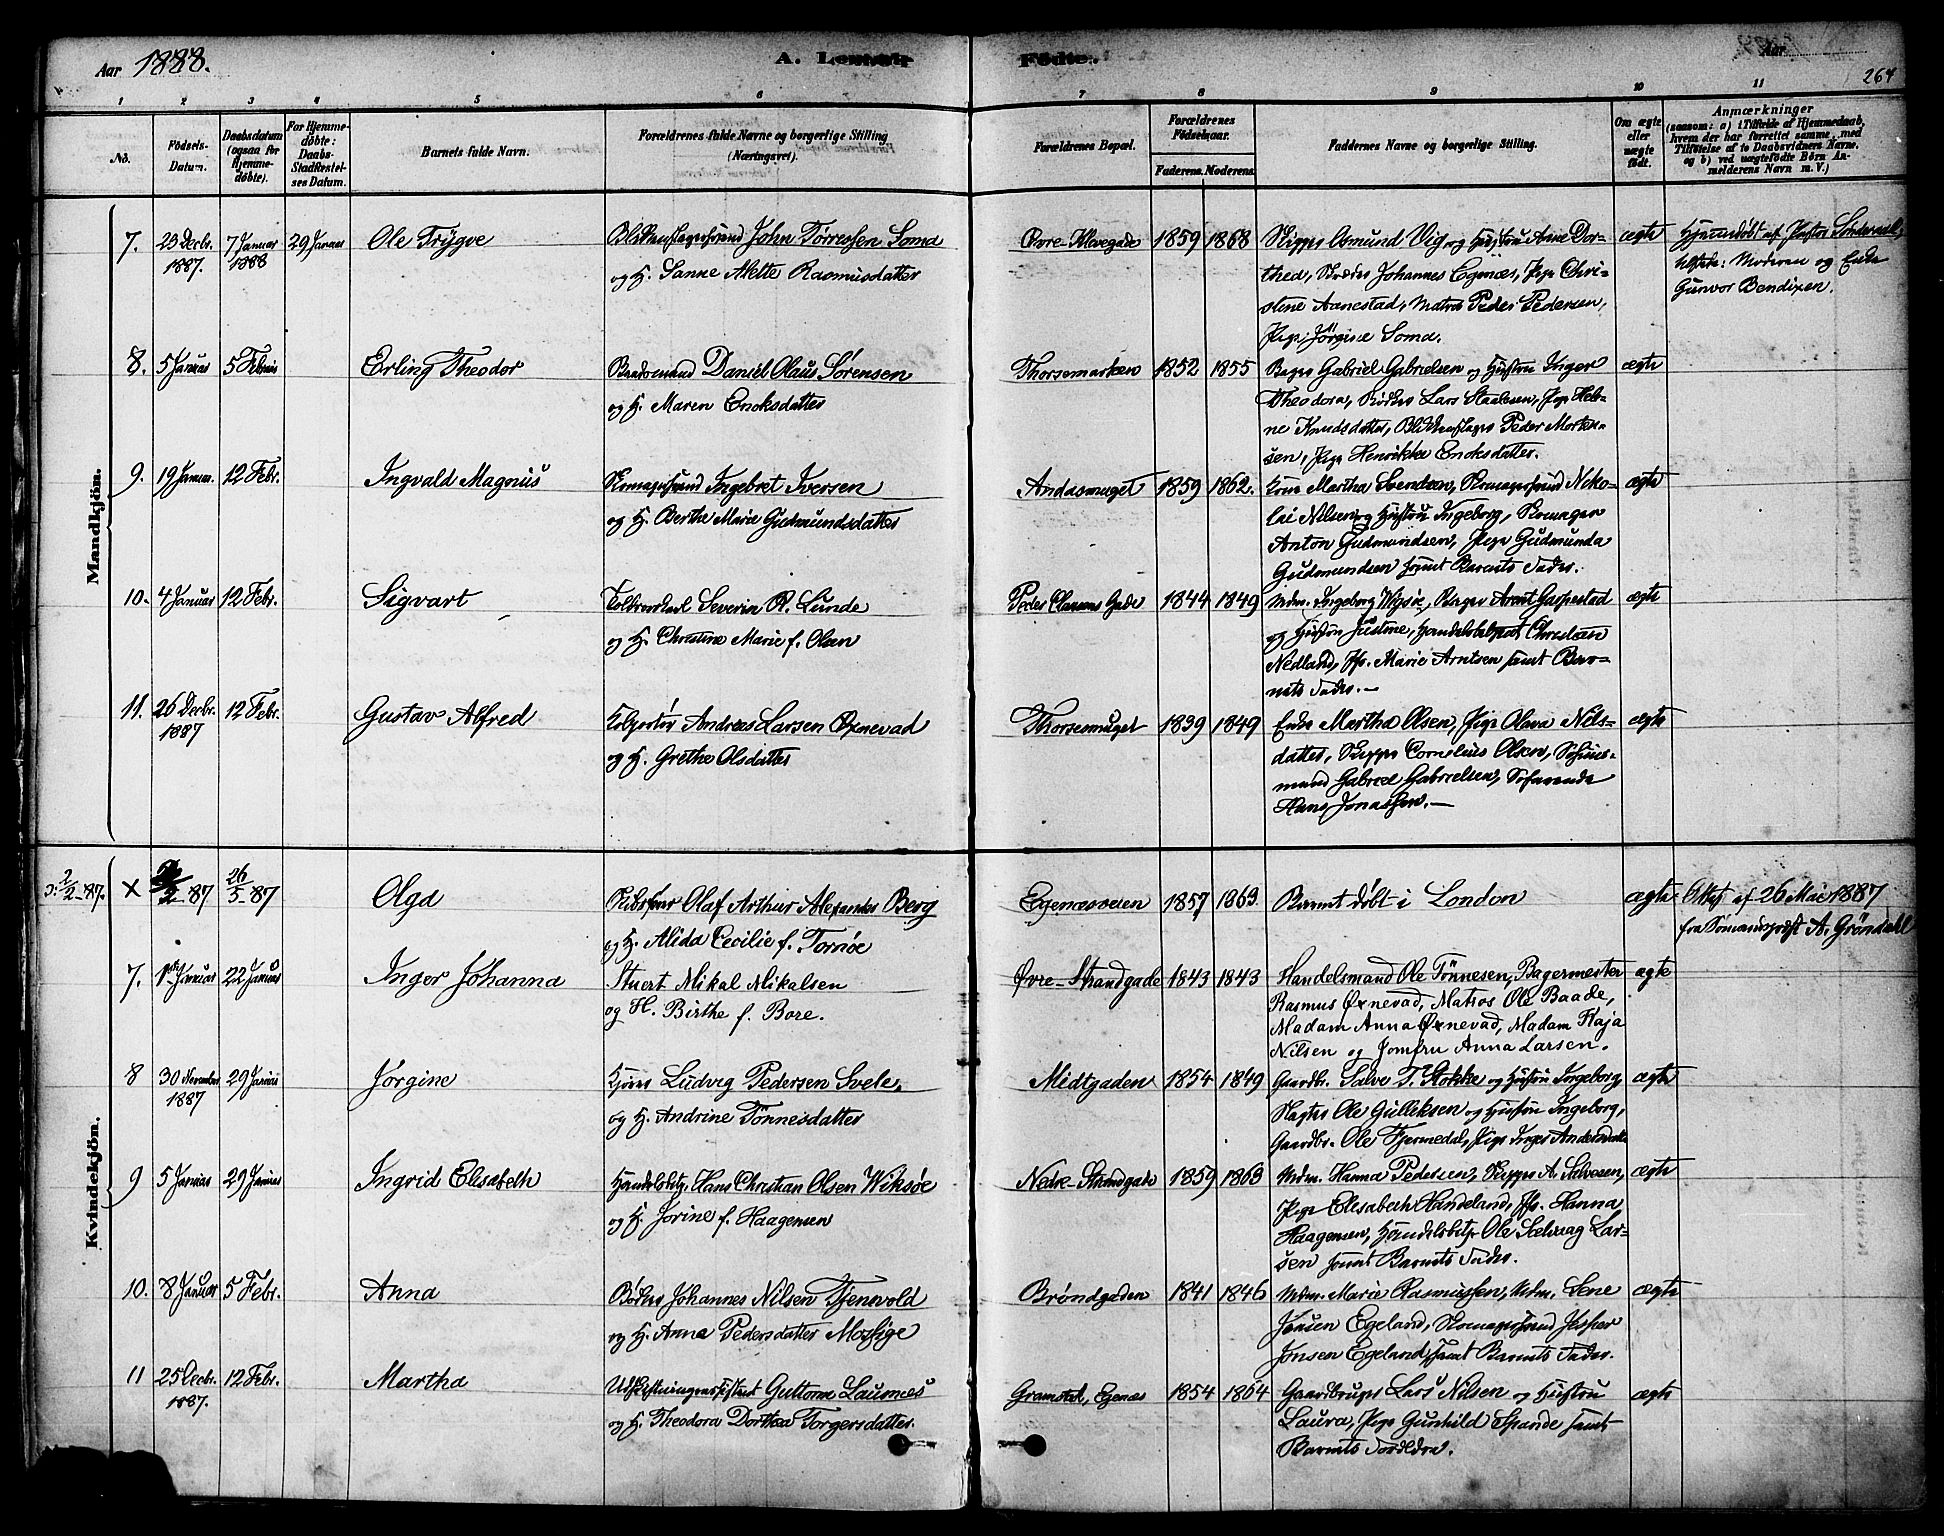 Aar 1888.
A.
Fødte.
Aar
264
1 2 3 4 5 6 7 8 9 10 11
No.
Fødsels-Datum.
Daabsdatum (ogsaa for Hjemmedøbte).
For Hjemmedøbte: Daabs-Stadfæstelses Datum.
Barnets fulde Navn.
Forældrenes fulde Navne og borgerlige Stilling (Næringsvei).
Forældrenes Bopæl.
Forældrenes Fødselsaar.
Faderens. Moderens.
Faddernes Navne og borgerlige Stilling.
Om ægte eller uægte født.
Anmærkninger
(saasom: a) i Tilfælde af Hjemmedaab, hvem der har forrettet samme, med Tilføielse af to Daabsvidners Navne, og b) ved uægtefødte Børn Anmelderens Navn m. V.)
Mandkjön.
7. 23 Decbr. 1887. 7 Januar 1888 29 Januar Ole Trygve John Torressen Soma
og H. Sanne Mette Rasmusdatter
Øvre Klevegade 1859 1868 Skipper Osmund Vig og Hustru Anne Dor-
thea, Johannes Egenæs, Pige Chri-
stine Aanestad, Matros Peder Pedersen,
Pige Jørgine Soma.
ægte
Hjemmedøbt af Pastor
tilstede: Moderen og Enke
Gunvor Bendixen.
8. 5 Januar 5 Februar Erling Theodor Baadsmand Daniel Olaus Sørensen
og H. Maren Enoksdatter
Thorsemarken 1852 1855 Bager Gabriel Gabrielsen og Hustru Inger
Theodora, Bødker Lars Staalesen, Pige Hele-
ne Knudsdatter, Peder Morten-
sen, Pige Henrikke Enoksdatter.
ægte
9. 19 Januar. 12 Febr. Ingvald Magnus Ingebret Iversen
og H. Berthe Marie Gudmundsdatter
Andasmuget 1859 1862. Martha Svendsen, Niko-
lai Nilsen og Hustru Ingeborg, Skomager
Anton Gudmundsen, Pige Gudmunda
Gudmundsen samt Barnets Fader.
ægte
10. 4 Januar 12 Febr. Sigvart Severin R. Lunde
og H. Christine Marie f. Olsen
Peder Clausens Gade 1844 1849 Mdm. Ingeborg Wigsøe, Bager Arent Gaspestad
og Hustru Justine, Christian
Nedland, Jfr. Marie Arntsen samt Bar-
nets Fader.—
ægte
11. 26 Decbr. 1887 12 Febr. Gustav Alfred Andreas Larsen Øxnevad
og H. Grethe Olsdatter
Thorsesmuget 1839 1849 Enke Martha Olsen, Pige Olava Nils-
datter, Skipper Cornelius Olsen,
Gabriel Gabrielsen, Søfarende
Hans Jonassen.—
ægte
Kvindekjön.
ɔ: 2/2-87. × /2 87 26/5-87 Olga Olaf Arthur Alexander Berg
og H. Alida Cecilie f. Tornøe
Egenæsveien 1857 1863 Barnet døbt i London
ægte
Attest af 26 Mai 1887
fra Sømandspræst A. Grøndahl
7. 1ste Januar 22 Januar Inger Johanna Stuert Mikal Mikalsen
og H. Birthe f. Bore.
Øvre-Strandgade 1843 1843 Handelsmand Ole Tønnesen, Bagermester
Rasmus Øxnevad, Matros Ole Baade,
Madam Anna Øxnevad, Madam Kaja
Nilsen og Jomfru Anna Larsen.
ægte
8 30 November 1887 29 Januar Jørgine Ludvig Pedersen Svele,
og H. Andrine Tønnesdatter
Midtgaden 1854 1849 Gaardbr. Salve T. Stokke og Hustru Ingeborg
Slagter Ole Gulliksen og Hustru Ingeborg,
Gaardbr. Ole Pige Inger
ægte
9 5 Januar 29 Januar Ingrid Elisabeth Handelsbetj. Hans Christian Olsen Wiksøe
og H. Jorine f. Haagensen
Nedre-Strandgade 1859 1863 Mdm. Hanna Pedersen, Skipper A. Salvesen,
Pige Elisabeth Handeland, Jfr. Hanna
Haagensen, Handelsbetj. Ole Sælvaag Lar-
sen samt Barnets Fader.
ægte
10. 8 Januar 5 Febr. Anna Bødker Johannes Nilsen Tjensvold
og H. Anna Pedersdatter Mossige
Brøndgaden 1841 1846 Mdm. Marie Rasmussen, Mdm. Lene
Jonsen Egeland, Jesper
Jonsen Egeland samt Barnets Fader.
ægte
11 25 Decbr. 1887. 12 Febr. Martha Guttorm Launes
og H. Theodora Dorthea Torgersdatter
Gramstad, Egenæs 1854 1864 Gaardbruger Lars Nilsen og Hustru
Laura, Pige Gunhild Espande samt
Barnets Forældre.
ægte